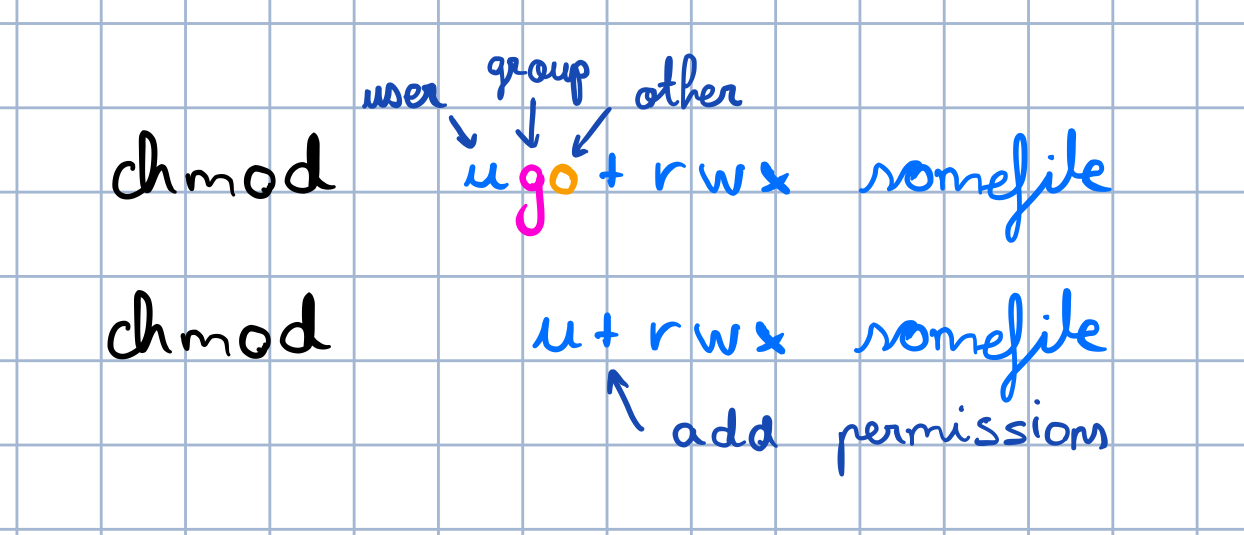 user group other
chmod ugo+rwx somefile
chmod u+rwx somefile
add permissions